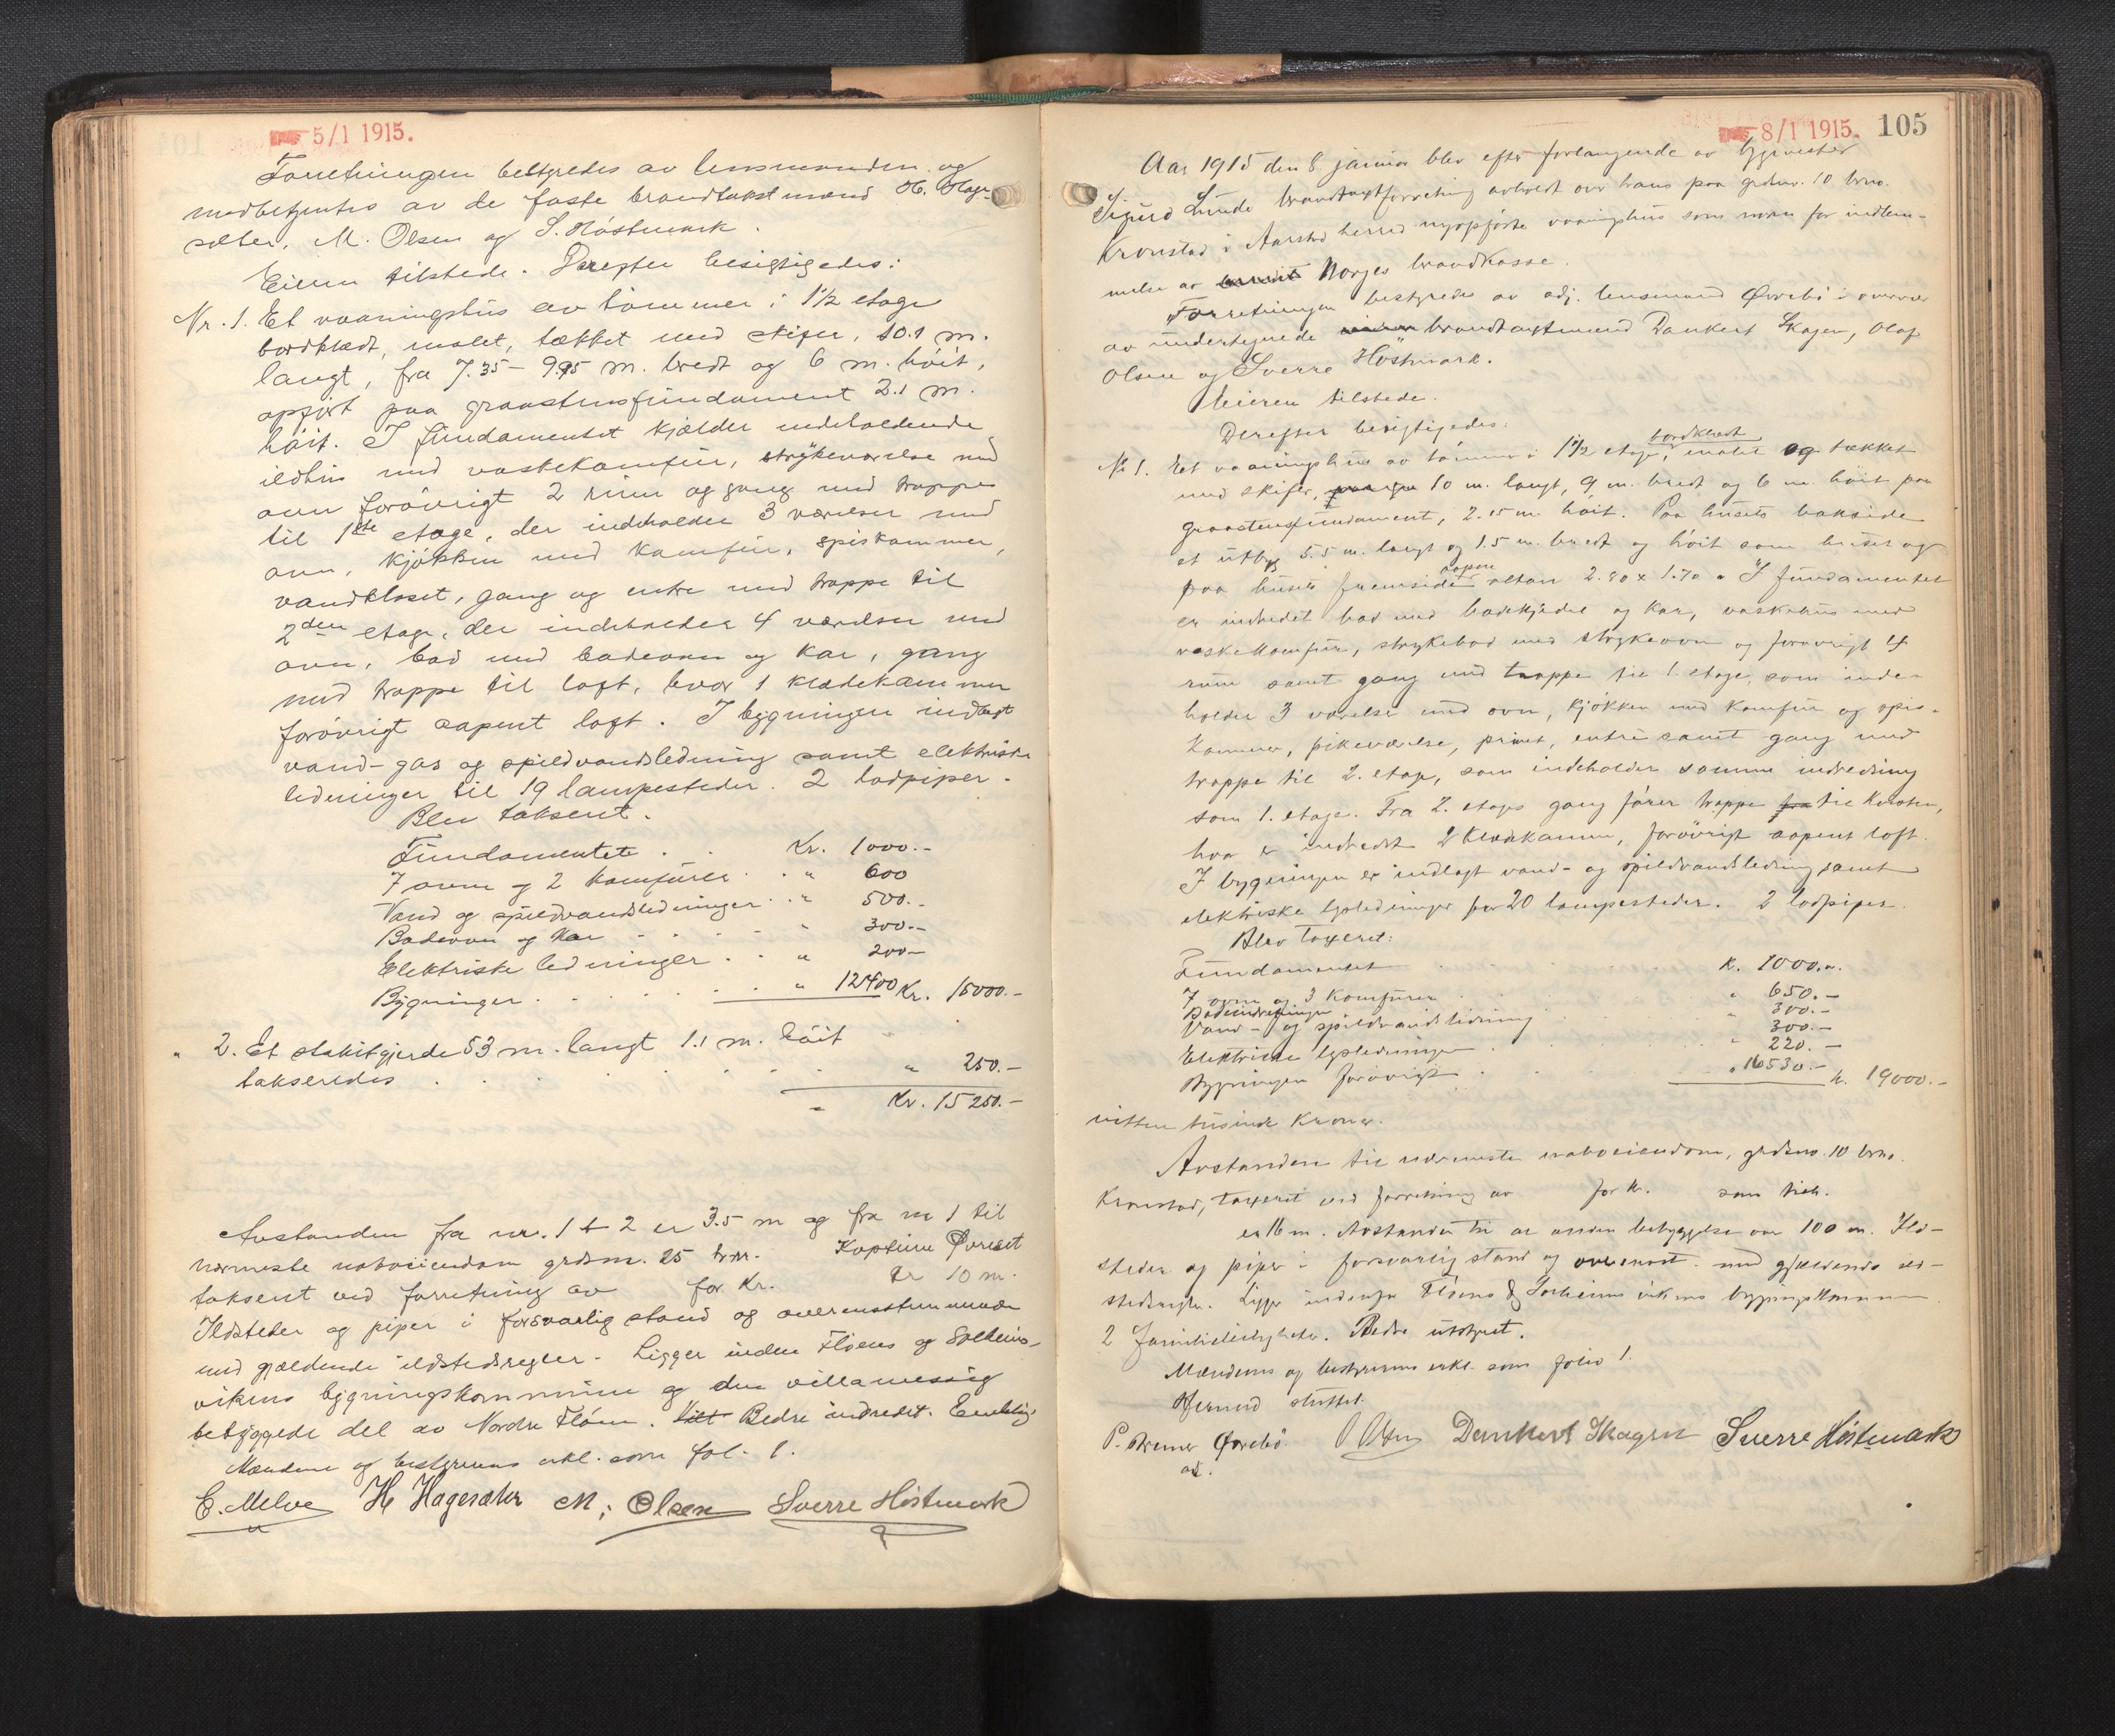 5/1 1915.
Forretningen bestyredes av lensmanden og
medbetjentes av de faste brandtakstmænd H. Hage-
sæter, M. Olsen og S. Høstmark.
Eieren tilstede. Derefter besigtigedes:
Nr. 1. Et vaaningshus av tømmer i 1½ etage
bordklædt, malet, tækket med skifer, 10.1 m.
langt, fra 7.35 - 9.95 m. bredt og 6 m. høit,
opført paa graastensfundament 2.1 m.
høit. I fundamentet kjælder indeholdende
ildhus med vaskekomfur, strykeværelse med
ovn forøvrigt 2 rum og gang med trappe
til 1ste etage, der indeholder 3 værelser med
ovn, kjøkken med komfur, spiskammer,
vandkloset, gang og entre med trappe til
2den etage, der indeholder 4 værelser med
ovn, bad med badeovn og kar, gang
med trappe til loft, hvor 1 klædekammer
forøvrigt aapent loft. I bygningen indlagt
vand- gas og spildvandsledning samt elektriske
ledninger til 19 lampesteder. 2 lodpiper.
Blev taksert.
Fundamentet . . Kr. 1000.-
7 ovne og 2 komfurer . . " 600
Vand og spildvandsledninger . . " 500.-
Badeovn og kar - - - " 300.-
Elektriske ledninger . . " 200-
Bygninger . . . . " 12400 Kr. 15000.-
" 2. Et stakitgjerde 53 m. langt 1.1 m. høit
takseredes . . . . . . " 250.-
" Kr. 15250.-
Avstanden fra nr. 1 t 2 er 3.5 m og fra nr 1 til
nærmeste naboeiendom grdsnr. 25 brnr. Kaptein
taksert ved forretning av for Kr. er 10 m.
Ildsteder og piper i forsvarlig stand og overensstemmende
med gjældende ildstedsregler. Ligger inden Fløens og Solheims-
vikens bygningskommune og den villamessig
bebyggede del av Nordre Fløen. Bedre indredet.
Mændene og bestyrerens erkl. som fol. 1.
E. Melve H Hagesæter M. Olsen Sverre Høstmark
8/1 1915. 105
Aar 1915 den 8 januar blev efter forlangende av
Sigurd Lunde brandtaxtforretning avholdt over hans paa grdsnr. 10 brno.
Kronstad i Aarstad herred nyopførte vaaningshus som svar for indlem-
melse av Norges brandkasse.
Forretningen bestyredes av adj. lensmand Øvrebø i overvær
av undertegnede brandtaxtmænd Dankert Skagen, Olaf
Olsen og Sverre Høstmark.
Eieren tilstede.
Derefter besigtigedes:
Nr 1. Et vaaningshus av tømmer i 1½ etage, bordklædt, malet og tækket
med skifer, 10 m. langt, 9 m. bredt og 6 m. høit paa
graastensfundament, 2.15 m. høit. Paa husets bakside
et utbyg 5.5 m. langt og 1.5 m. bredt og høit som huset og
paa husets fremside aapen altan 2.80 x 1.70. I fundamentet
er indredet bad med badekjedel og kar, vaskehus med
vaskekomfur, strykebod med strykeovn og forøvrigt 4
rum samt gang med trappe til 1. etage, som inde-
holder 3 værelser med ovn, kjøkken med komfur og spis-
kammer, pikeværelse, privet, entre samt gang med
trappe til 2. etage, som indeholder samme indredning
som 1. etage. Fra 2. etages gang fører trappe til kvisten,
hvor er indredet 2 klædekammer, forøvrigt aapent loft.
I bygningen er indlagt vand- og spildvandsledning samt
elektriske lysledninger for 20 lampesteder. 2 lodpiper.
Blev Taxeret:
Fundamentet . . . K. 1000.-
7 ovne og 3 komfurer . . " 650.-
Badeindretninger . . " 300.-
Vand- og spildvandsledning . . 300.-
Elektriske lysledninger . . " 220.-
Bygningen forøvrigt . . " 16530.- Kr. 19000.-
nitten tusinde Kroner.
Avstanden til nærmeste naboeiendom, grdsno. 10 brno.
Kronstad, taxeret ved forretning av for Kr. som tilh.
er 16 m. Avstanden til al anden bebyggelse over 100 m. Ild-
steder og piper i forsvarlig stand og overensst. med gjældende ild-
stedsregler. Ligger indenfor Fløens & Solheimsvikens bygningskommune
2 familieleiligheter. Bedre utstyret.
Mændenes og bestyrerens erkl. som folio 1.
Hermed sluttet.
P. Bremer Øvrebø O Olsen Dankert Skagen Sverre Høstmark
adj.